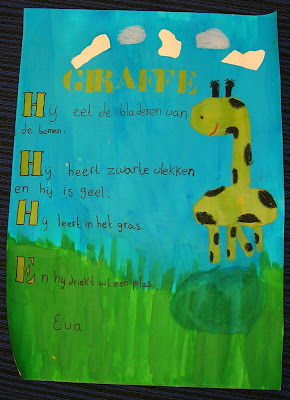 GIRAFFE
Hij eet de bladeren van
de bomen.
Hij heeft zwarte vlekken
en hij is geel.
Hij leeft in het gras.
En hij drinkt uit een plas.
Eva